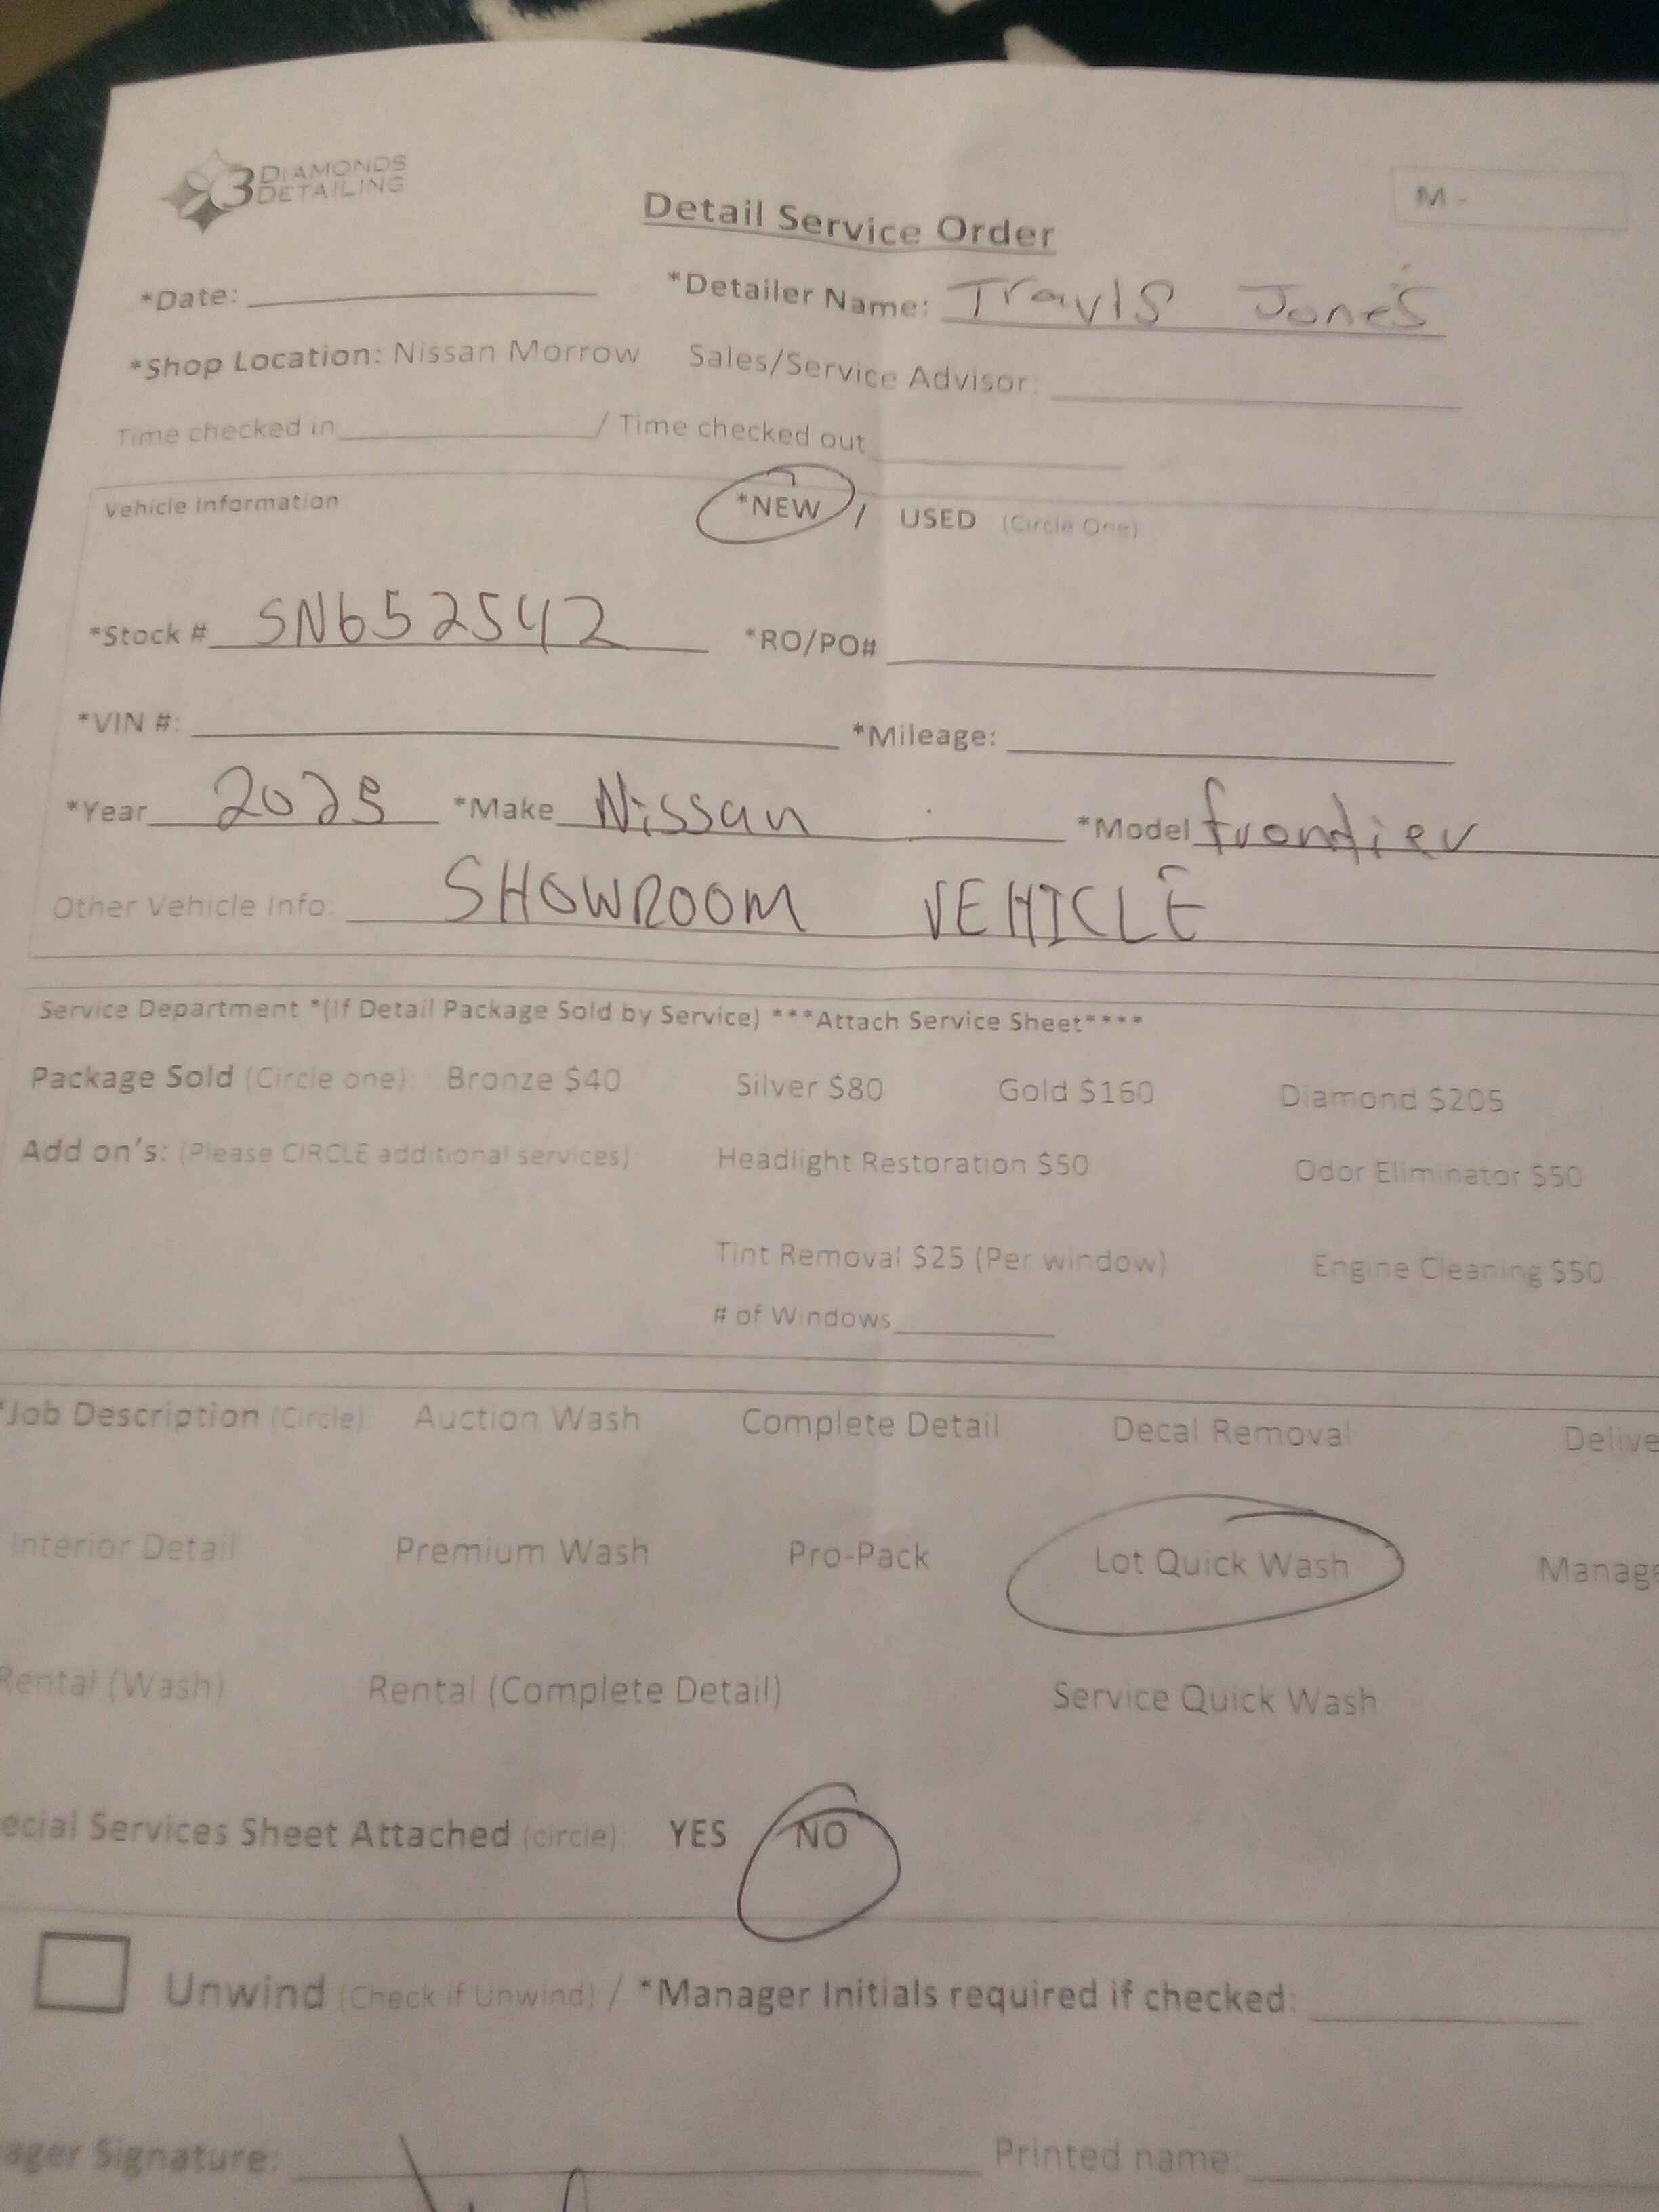 3 DIAMONDS
DETAILING
M-
Detail Service Order
*Date: *Detailer Name: Travis Jones
*Shop Location: Nissan Morrow Sales/Service Advisor:
Time checked in / Time checked out
Vehicle Information *NEW / USED (Circle One)
*Stock # SN652542 *RO/PO#
*VIN #: *Mileage:
*Year 2025 *Make Nissan *Model frontier
Other Vehicle Info: SHOWROOM VEHICLE
Service Department *(If Detail Package Sold by Service) ***Attach Service Sheet****
Package Sold (Circle one): Bronze $40 Silver $80 Gold $160 Diamond $205
Add on's: (Please CIRCLE additional services) Headlight Restoration $50 Odor Eliminator $50
Tint Removal $25 (Per window) Engine Cleaning $50
# of Windows
*Job Description (Circle) Auction Wash Complete Detail Decal Removal Delive
Interior Detail Premium Wash Pro-Pack Lot Quick Wash Manage
Rental (Wash) Rental (Complete Detail) Service Quick Wash
ecial Services Sheet Attached (circle) YES NO
Unwind (Check if Unwind) / *Manager Initials required if checked:
ager Signature: Printed name: